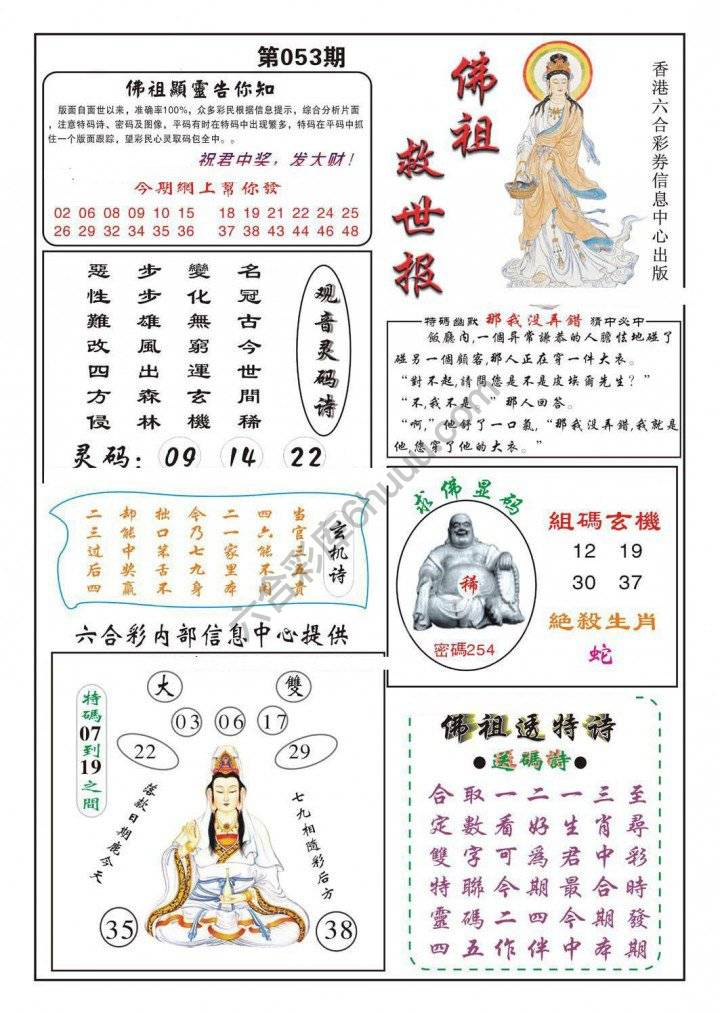 第053期
佛祖顯靈告你知
版面自面世以来，准确率100%，众多彩民根据信息提示，综合分析片面
，注意特码诗、密码及图像，平码有时在特码中出现繁多，特码在平码中抓
住一个版面跟踪，望彩民心灵取码包全中。。
祝君中奖，发大财！
今期網上幫你發
02 06 08 09 10 15 18 19 21 22 24 25
26 29 32 34 35 36 37 38 43 44 46 48
佛祖
救世报
香港六合彩券信息中心出版
观音灵码诗
名冠古今世間稀
變化無窮運玄機
步步雄風出森林
惡性難改四方侵
灵码：09 14 22
特碼幽默 那我没弄錯 猜中必中
飯廳内,一個异常謙恭的人膽怯地碰了
碰另一個顧客,那人正在穿一件大衣。
“對不起,請問您是不是皮埃爾先生？”
“不,我不是。”那人回答。
“啊,”他舒了一口氣,“那我没弄錯,我就是
他,您穿了他的大衣。”
玄机诗
当官三五貴
四六能不
二一家里本
今乃七九身
拙口笨舌不
却能中奖赢
二三过后四
六合彩内部信息中心提供
求佛显码
稀
密碼254
組碼玄機
12 19
30 37
絶殺生肖
蛇
特碼07到19之間
大 雙
03 06 17
22 29
落款日期鹿今天
七九相隨彩后方
35 38
佛祖透特诗
●送碼詩●
合取一二一三至
定數看好生肖尋
雙字可爲君中彩
特聯今期最合時
靈碼二四今期發
四五作伴中本期
六合彩库6huuu.com